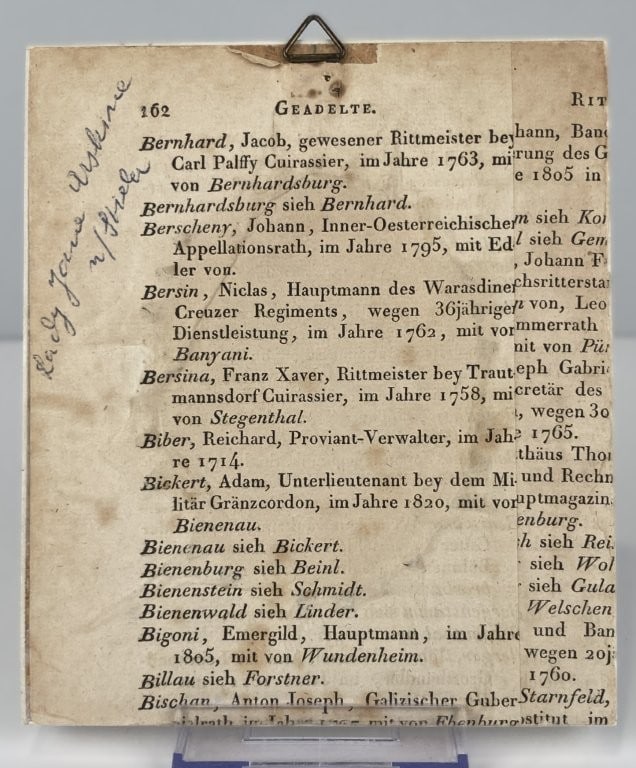 Lady Jane Erskine
n/ Stieler
162 GEADELTE.
Bernhard, Jacob, gewesener Rittmeister bey
Carl Palffy Cuirassier, im Jahre 1763, mi
von Bernhardsburg.
Bernhardsburg sieh Bernhard.
Berscheny, Johann, Inner-Oesterreichischer
Appellationsrath, im Jahre 1795, mit Ed
ler von.
Bersin, Niclas, Hauptmann des Warasdiner
Creuzer Regiments, wegen 36jähriger
Dienstleistung, im Jahre 1762, mit vor
Banyani.
Bersina, Franz Xaver, Rittmeister bey Traut
mannsdorf Cuirassier, im Jahre 1758, mi
von Stegenthal.
Biber, Reichard, Proviant-Verwalter, im Jah
re 1714.
Bickert, Adam, Unterlieutenant bey dem Mi
litär Gränzcordon, im Jahre 1820, mit vor
Bienenau.
Bienenau sieh Bickert.
Bienenburg sieh Beinl.
Bienenstein sieh Schmidt.
Bienenwald sieh Linder.
Bigoni, Emergild, Hauptmann, im Jahre
1805, mit von Wundenheim.
Billau sieh Forstner.
Bischan, Anton Joseph, Galizischer Guber
nialrath im Jahre 1797 mit von Ebenburg
RIT
hann, Banc
rung des G
e 1805 in
m sieh Kor
l sieh Gem
, Johann F
chsritterstar
n von, Leo
mmerrath
nit von Pür
eph Gabri
cretär des
, wegen 30
1765.
thäus Thor
und Rechn
uptmagazin
enburg.
h sieh Rei
sieh Wol
sieh Gula
Welschen
und Ban
wegen 20j
1760.
Starnfeld,
stitut im